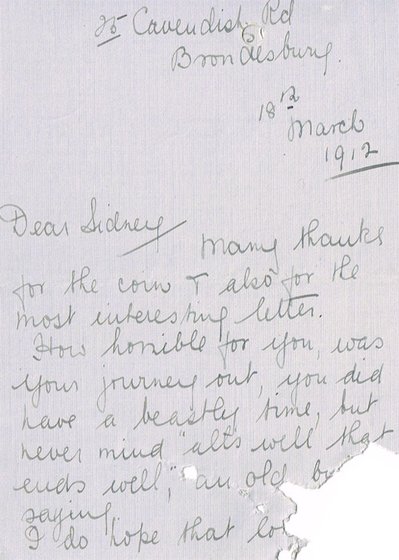 25 Cavendish Rd
Brondesbury.
18th
March
1912
Dear Sidney
Many thanks
for the coin & also for the
most interesting letter.
How horrible for you, was
your journey out, you did
have a beastly time, but
never mind "alls well that
ends well", an old
saying
I do hope that